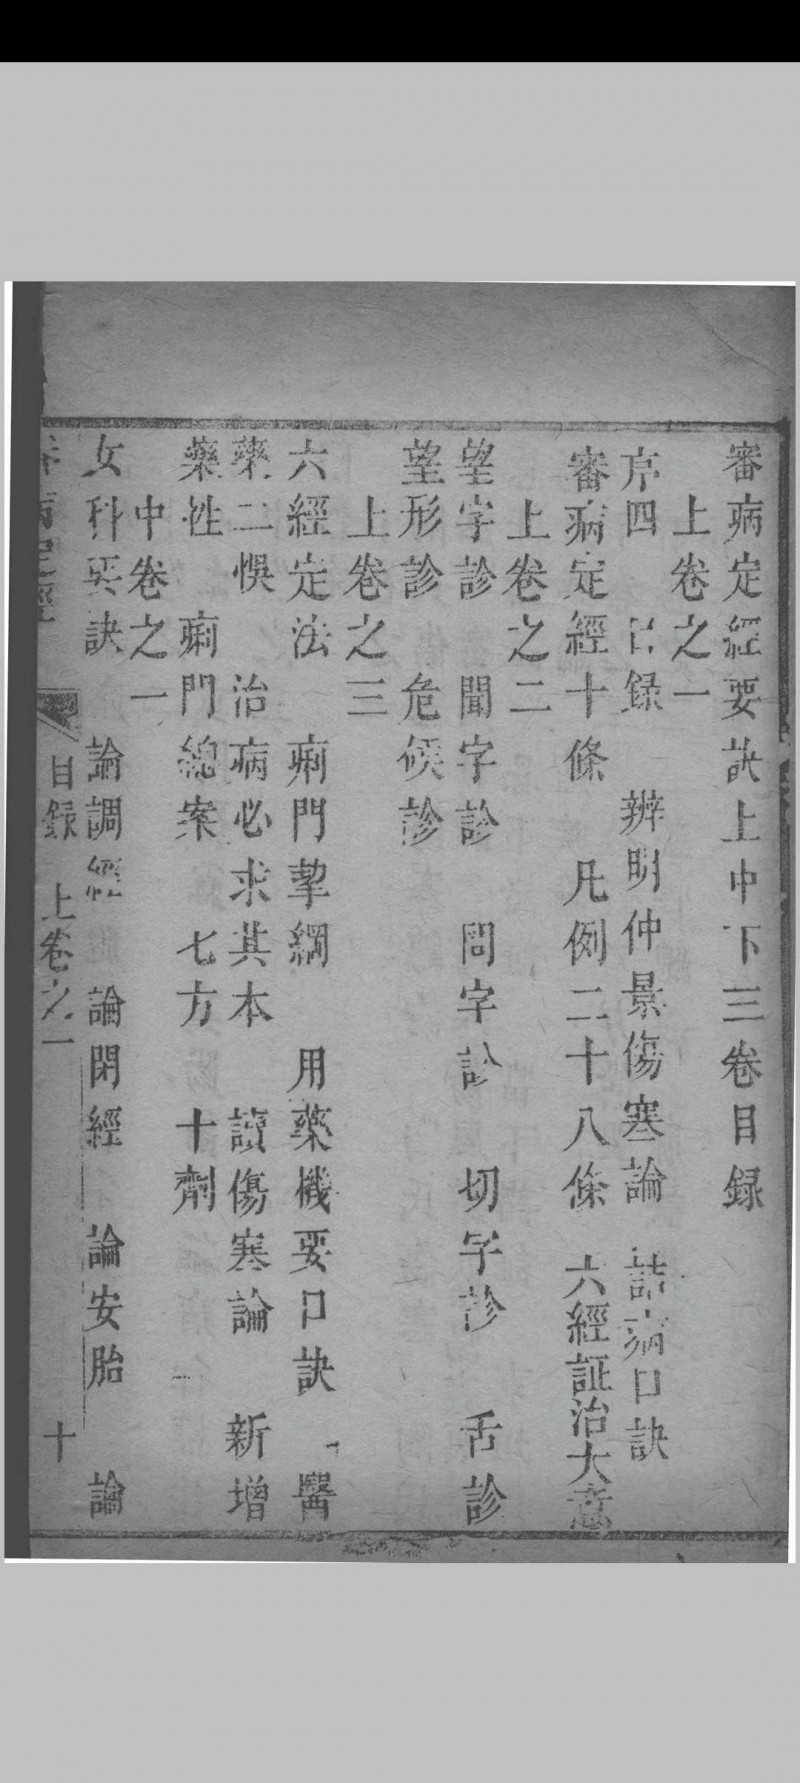 審病定經要訣上中下三卷目録
上卷之一
序四 目録 辨明仲景傷寒論 詰病口訣
審病定經十條 凡例二十八條 六經証治大意
上卷之二
望字診 聞字診 問字診 切字診 舌診
望形診 危候診
上卷之三
六經定法 痢門挈綱 用藥機要口訣 醫
藥二悞 治病必求其本 讀傷寒論 新增
藥性 痢門總案 七方 十劑
中卷之一
女科要訣 論調經 論閉經 論安胎 論
病定經 目録 上卷之一 十